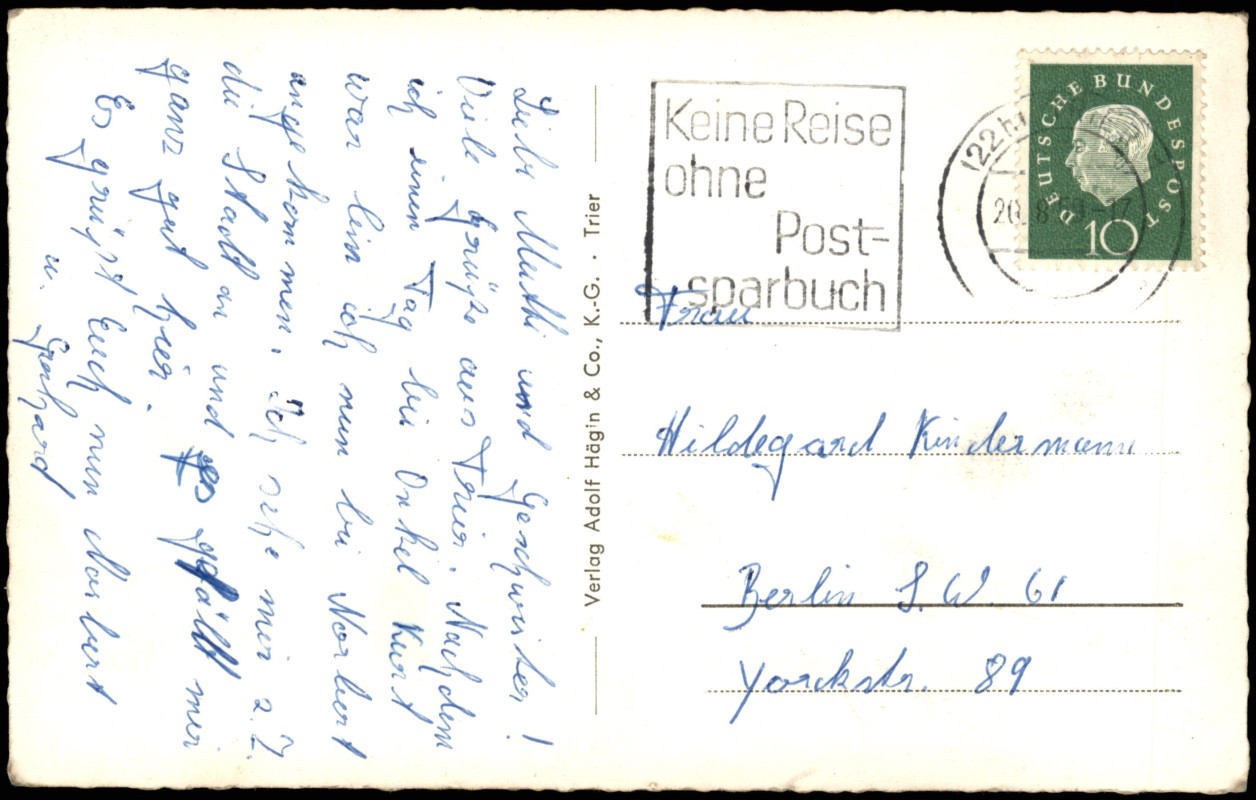 Liebe Mutti und Geschwister!
Viele Grüße aus Trier. Nachdem
ich einen Tag bei Onkel Kurt
war bin ich nun bei Norbert
angekommen. Ich sehe mir z. Z.
die Stadt an und es gefällt mir
ganz gut hier.
Es grüßt Euch nun Norbert
u. Gerhard
Verlag Adolf Hägin & Co., K.-G. · Trier
Keine Reise
ohne
Post-
sparbuch
(22b)
20. 8. 59-17
DEUTSCHE BUNDESPOST
10
Frau
Hildegard Kindermann
Berlin S. W. 61
Yorckstr. 89